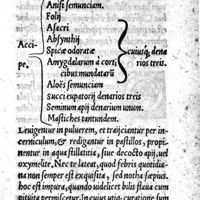 Anisi semunciam.
Folij
Asari
Absynthij
Acci- Spicæ odoratæ cuiusq; dena
pe, Amygdalarum à corti, rios treis.
cibus mundatarū
Aloës semunciam
succi eupatorij denarios treis
Seminum apij denarium unum.
Mastiches tantundem.
Leuigentur in puluerem, et traijciantur per in-
cerniculum, & redigantur in pastillos, propi,
nentur in aqua stillatitia, siue decocto apij, uel
oxymelite. Nec te lateat, quod febris quotidia-
na non semper est exquisita, sed notha sæpius.
hoc est impura, quando uidelicet bilis flaua cum
pituita permiscetur. In cuius una curatione sum